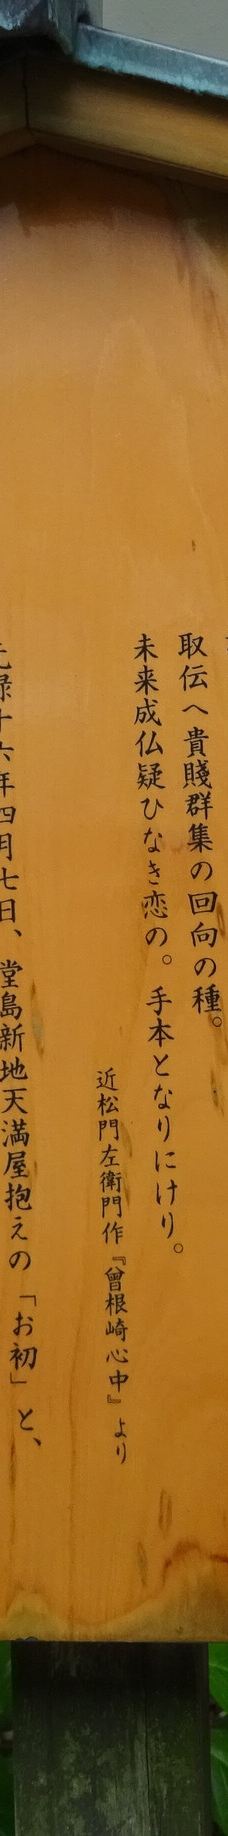 取伝へ貴賤群集の回向の種。
未来成仏疑ひなき恋の。手本となりにけり。
近松門左衛門作『曾根崎心中』より
元禄十六年四月七日、堂島新地天満屋抱えの「お初」と、